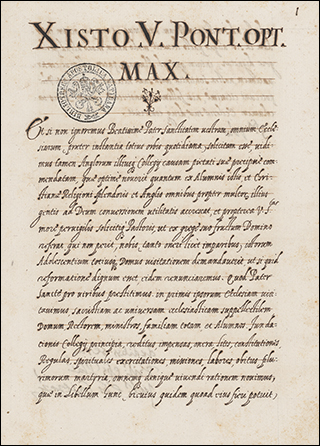 1
XISTO V. PONT. OPT.
MAX.
Et si non ignoremus Beatissime Pater sanctitatem vestram, omnium Eccle
siarum preter instantia totius orbis quotidiana, solicitam esse, vidi
mus tamen Anglorum illius Collegij causam pietati suæ precipue com
mendatam, que optime novit quantum ex Alumnis illis, et Cri
stianæ Religioni splendoris et Anglis omnibus propter multos, illius
gentis ad Deum conversionem utilitatis accrescat, et propterea V.
more pervigilis solicitiq Pastoris, ut ex fructum Domino
referat qui non perit, nobis, tante rei licet imparibus, istorum
Adolescentium totiusq Domus visitationem demandavit, ut si quid
reformatione dignum esset eidem renunciaremus. Quod Pater
Sancte pro viribus prestitimus. in primis ipsorum Ecclesiam visi
tavimus, sacristiam ac universam ecclesiasticam suppellectilem,
Domum Rectorem, ministros, familiam totam et Alumnos. funda
tionis Collegij principia, redditus, impensas, mores, lites, constitutiones
Regulas, spirituales exercitationes, missiones, labores, obitus, pluri
morum martyria, omnem denique vivendi rationem novimus,
que in libellum hunc, brevius quidem quam eius fieri potuit,